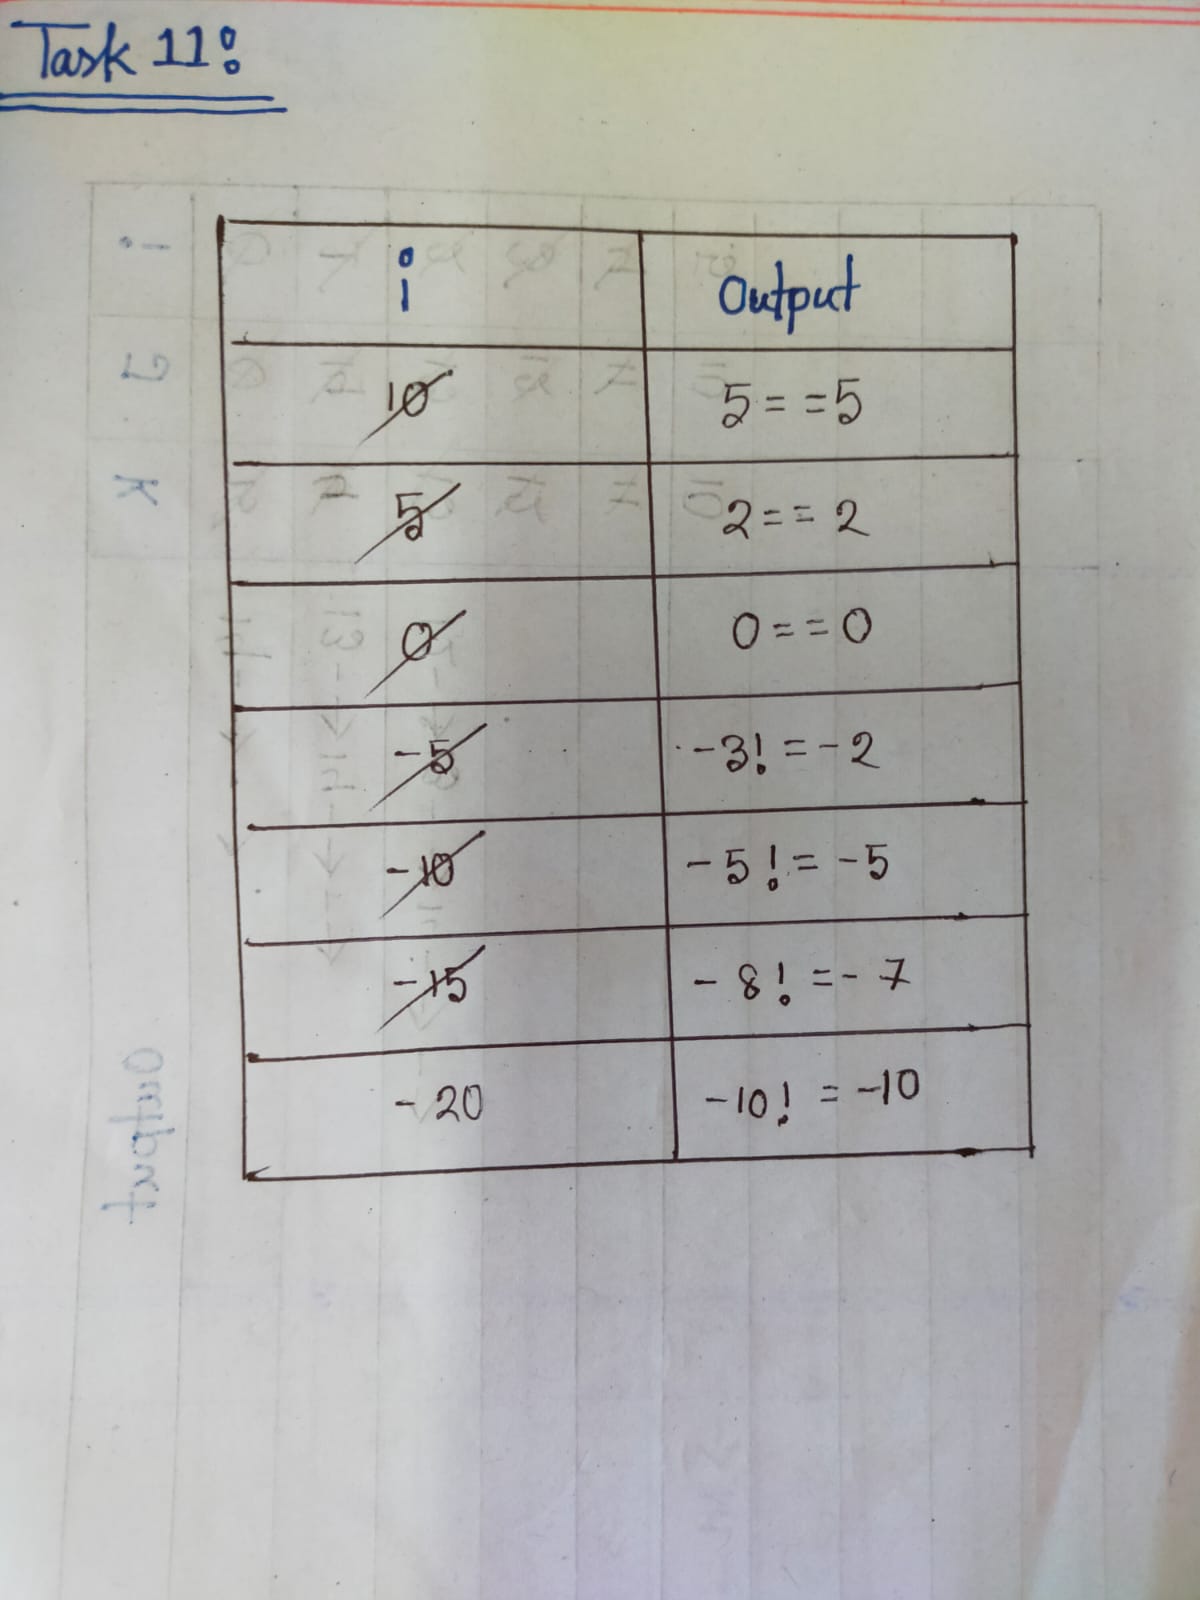 Task 11:
i Output
10 5==5
5 2==2
0 0==0
-5 -3!=-2
-10 -5!=-5
-15 -8!=-7
-20 -10!=-10